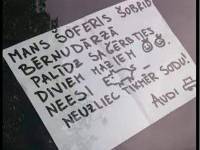 MANS ŠOFERIS ŠOBRĪD
BĒRNUDĀRZĀ
PALĪDZ SAĢĒRBTIES
DIVIEM MAZIEM
NEESI
NEUZLIEC TIKMĒR SODU!
AUDI